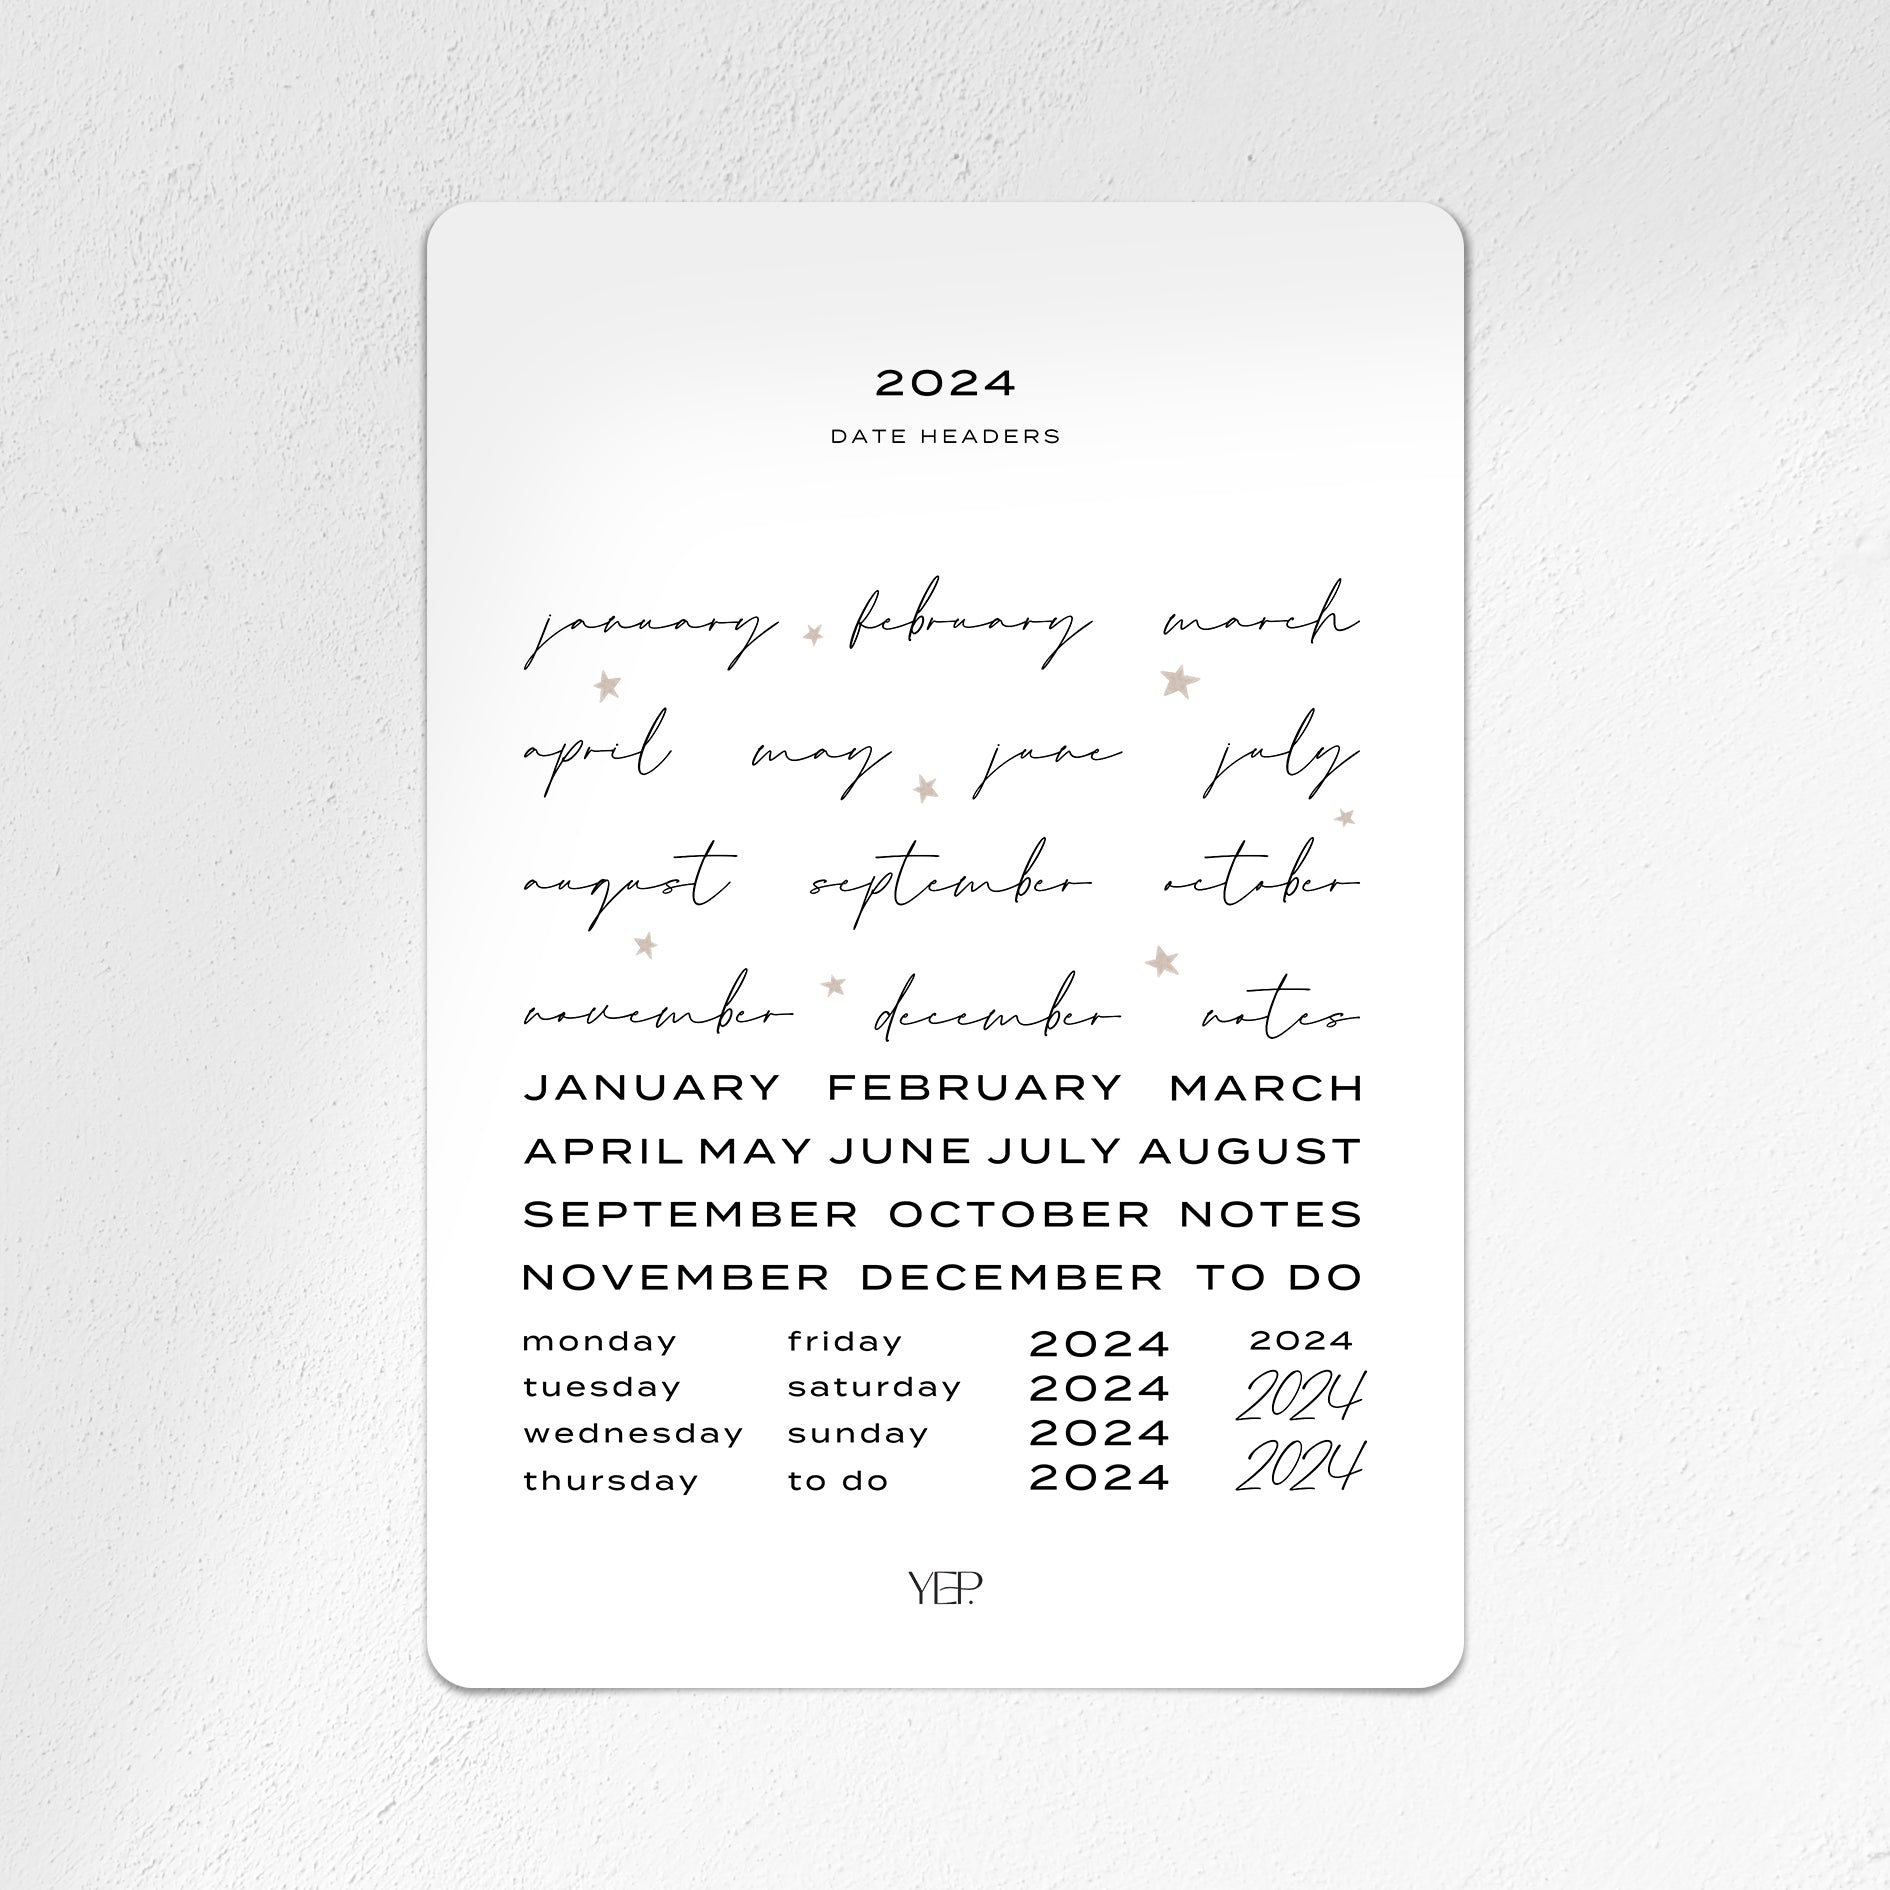 2024
DATE HEADERS
january february march
april may june july
august september october
november december notes
JANUARY FEBRUARY MARCH
APRIL MAY JUNE JULY AUGUST
SEPTEMBER OCTOBER NOTES
NOVEMBER DECEMBER TO DO
monday friday 2024 2024
tuesday saturday 2024 2024
wednesday sunday 2024 2024
thursday to do 2024
YEP.